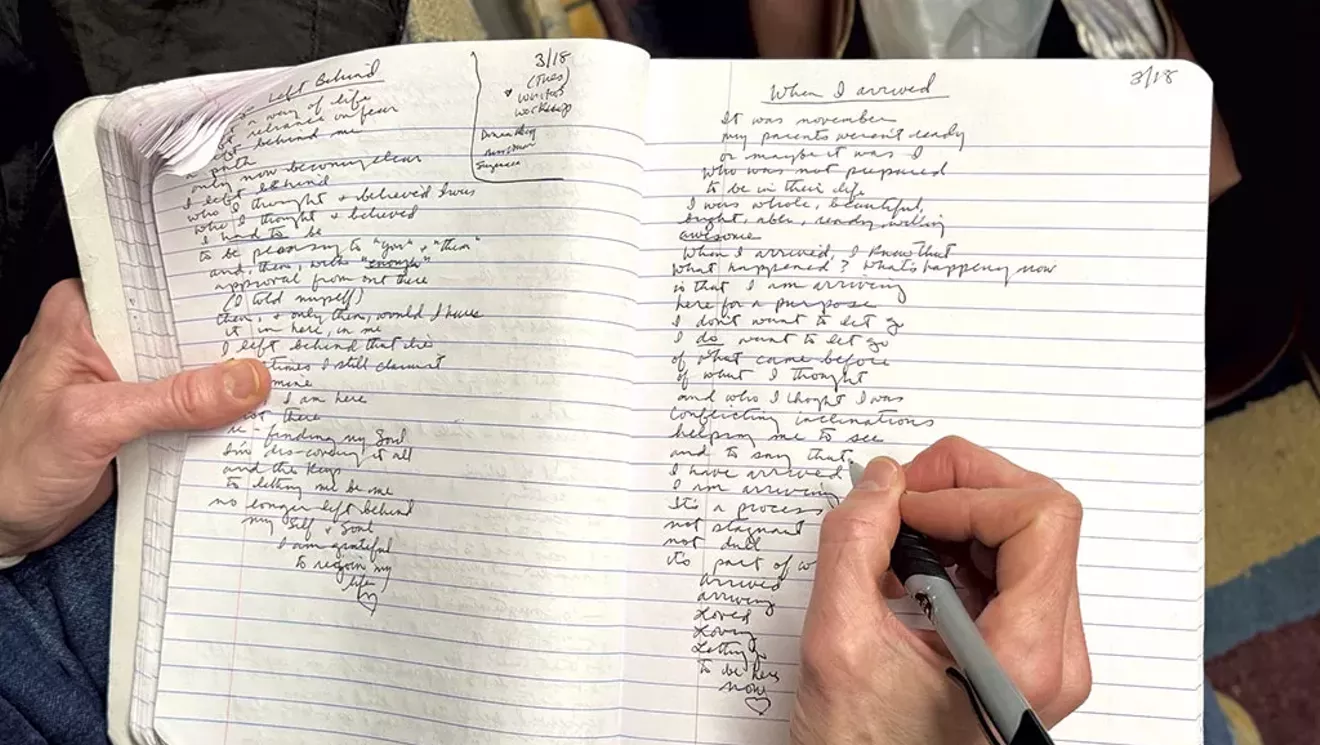 Left Behind
a way of life
reliance on fear
left behind me
a path
only now becoming clear
I left behind
who I thought + believed I was
who I thought + believed
I had to be
to be pleasing to "you" + "them"
and, then, with "enough"
approval from out there
(I told myself)
then, + only then, would I have
it in here, in me
I left behind that lie
times I still claim it
mine
I am here
not there
re-finding my Soul
I'm dis-covering it all
and the keys
to letting me be me
no longer left behind
my Self + Soul
I am grateful
to rejoin my
life
3/18
(Tues)
writers
workshop
When I arrived
3/18
It was november
my parents weren't ready
or maybe it was I
who was not prepared
to be in their life
I was whole, beautiful,
bright, able, ready, willing
awesome
When I arrived, I knew that
What happened? What's happening now
is that I am arriving
here for a purpose
I don't want to let go
I do want to let go
of what came before
of what I thought
and who I thoght I was
conflicting inclinations
helping me to see
and to say that
I have arrived
I am arriving
It's a process
not stagnant
not dull
its part of w
arrived
arriving
Loved
Loving
Letting
to be here
now